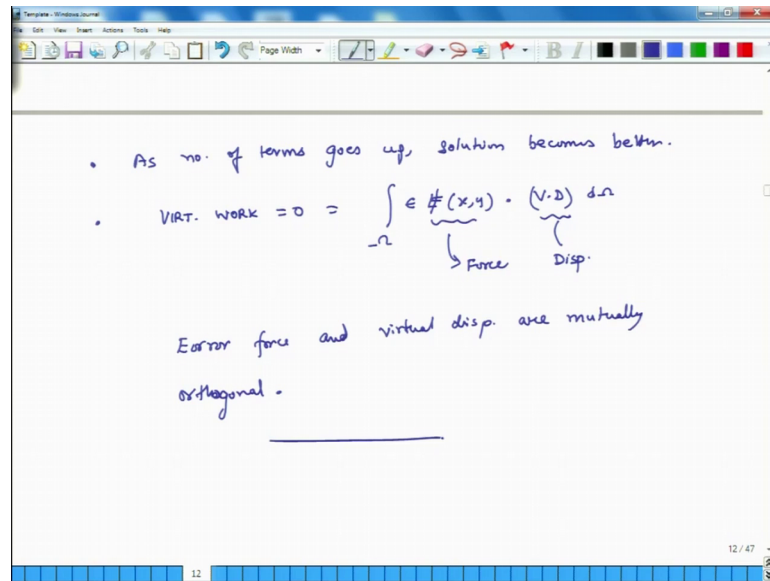 Template - Windows Journal
File Edit View Insert Actions Tools Help
Page Width
B I
• As no. of terms goes up, solution becomes better.
• VIRT. WORK = 0 = ∫ ∈ (x,y) · (V.D) dΩ
Ω
Force Disp.
Eorror force and virtual disp. are mutually
orthogonal.
12 / 47
12